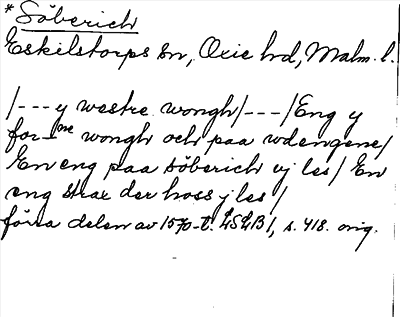 * Söberich
Eskilstorps sn, Oxie hd, Malm. l.
/--- y westre wongh/---/Eng y
for-ne wongh och paa wdengene/
En eng paa söberich vj les/ En
eng strax der hoss j les/
förra delen av 1570-t. LSLB1, s. 418. orig.